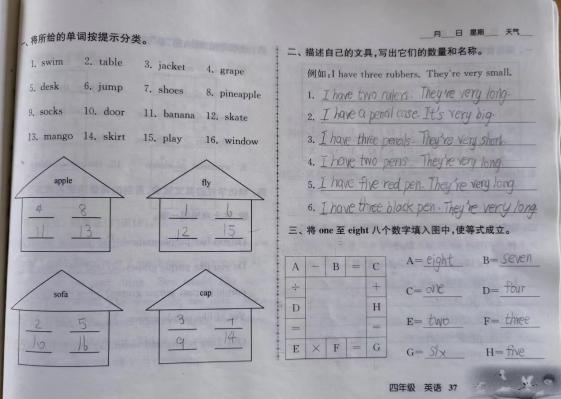 一、将所给的单词按提示分类。
1. swim 2. table 3. jacket 4. grape
5. desk 6. jump 7. shoes 8. pineapple
9. socks 10. door 11. banana 12. skate
13. mango 14. skirt 15. play 16. window
apple
4 8
11 13
fly
1 6
12 15
sofa
2 5
10 16
cap
3 7
9 14
月 日 星期 天气
二、描述自己的文具,写出它们的数量和名称。
例如:I have three rubbers. They're very small.
1. I have two rulers. They're very long.
2. I have a pencil case. It's very big.
3. I have three pencils. They're very short.
4. I have two pens. They're very long.
5. I have five red pen. They're very long.
6. I have three black pen. They're very long.
三、将 one 至 eight 八个数字填入图中,使等式成立。
A − B = C
÷ +
D H
= =
E × F = G
A= eight B= seven
C= one D= four
E= two F= three
G= six H= five
四年级 英语 37